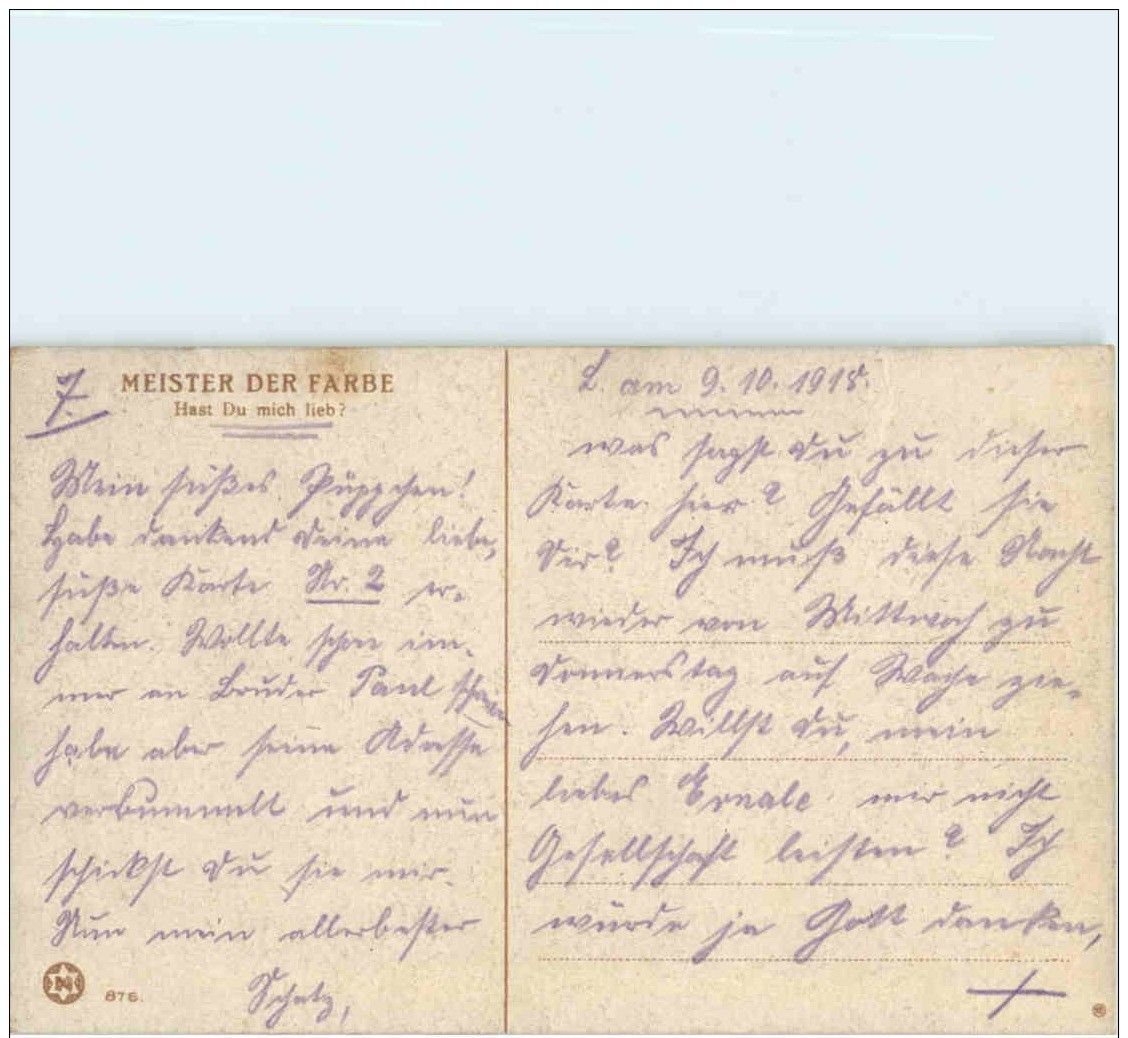 7.
MEISTER DER FARBE
Hast Du mich lieb?
Mein süßes Püppchen!
Habe dankend Deine liebe,
süße Karte Nr. 2 er-
halten. Wollte schon im-
mer an Bruder Paul schreiben
habe aber seine Adresse
verbummelt und nun
schickst Du sie mir.
Nun mein allerbester
Schatz,
876.
L. am 9.10.1918.
was sagst Du zu dieser
Karte hier? Gefällt sie
Dir? Ich muß diese Nacht
wieder von Mittwoch zu
Donnerstag auf Wache zie-
hen. Willst Du, mein
liebes mir nicht
Gesellschaft leisten? Ich
würde ja Gott danken,